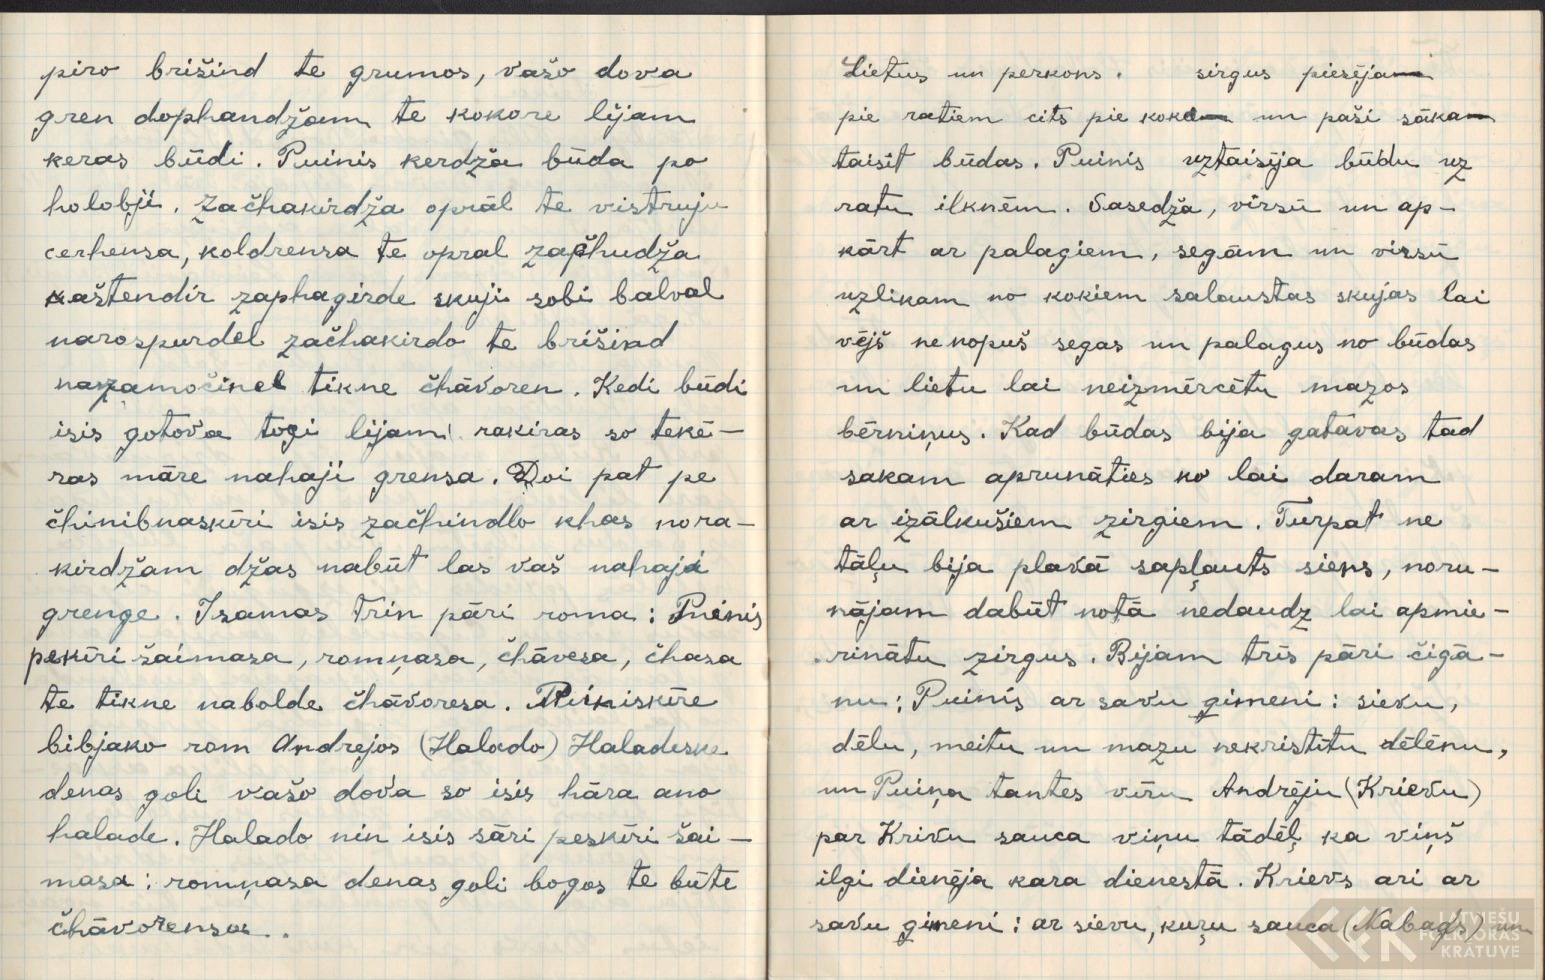 piro brišind te grumos, vašo dova
gren dophandžam te kokore lijam
keras būdi. Puinis kerdža būda po
holobji. Začhakirdža oprāl te vistruju
cerhensa, koldrensa te opral začhudža
kaštendir zaphagirde skuji sobi balval
narospurdel začhakirdo te brišind
nazamočinel tikne čhāvoren. Kedi būdi
isis gotova togi lijam rakiras so tekē-
ras māre nahaji grensa. Doi pat pe
čhinibnaskīri isis začhindlo khas nora-
kirdžam džas nabūt las vaš nahaja
grenge. Isamas trin pāri roma: Puinis
pekīri šaimasa, romņasa, čhāvesa, čhasa
te tikne nabolde čhāvoresa. Puiniskīre
bibjako rom Andrejos (Halado) Haladeske
denas goli vašo dova so isis hāra ano
halade. Halado nin isis sāri peskīri šai-
masa: romņasa denas goli bogos te būte
čhāvorensa.
Lietus un perkons. sirgus piesēja
pie ratiem cits pie koka un paši sāka
taisīt būdas. Puinis uztaisīja būdu uz
ratu ilknēm. Sasedža, virsū un ap-
kārt ar palagiem, segām un virsū
uzlikam no kokiem salaustas skujas lai
vējš nenopuš segas un palagus no būdas
un lietu lai neizmērcētu mazos
bērniņus. Kad būdas bija gatavas tad
sakam aprunāties ko lai daram
ar izālkušiem zirgiem. Turpat ne
tāļu bija plavā sapļauts siens, noru-
nājam dabūt notā nedaudz lai apmie-
rinātu zirgus. Bijam trīs pāri čigā-
nu: Puinis ar savu ģimeni: sievu,
dēlu, meitu un mazu nekristītu dēlēnu,
un Puiņa tantes vīru Andrēju (Krievu)
par Krivu sauca viņu tādēļ ka viņš
ilgi dienēja kara dienestā. Krievs ari ar
savu ģimeni: ar sievu, kuŗu sauca (Nabags) un
LATVIEŠU
FOLKLORAS
KRĀTUVE